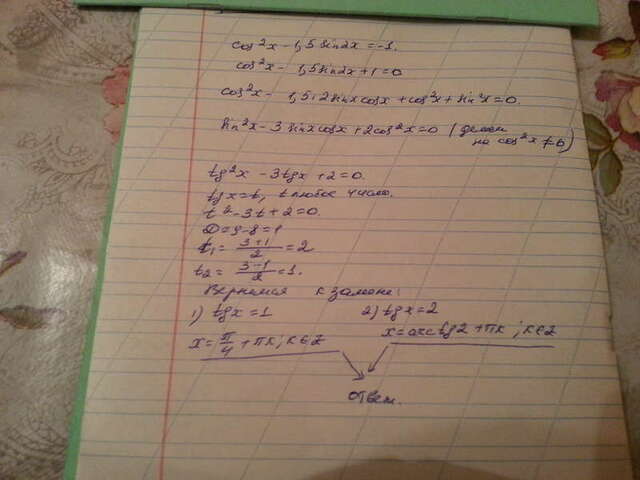 cos²x - 1,5 sin2x = -1.
cos²x - 1,5 sin2x + 1 = 0
cos²x - 1,5·2 sinx cosx + cos²x + sin²x = 0.
sin²x - 3 sinx cosx + 2cos²x = 0 (делим
на cos²x ≠ 0)
tg²x - 3tgx + 2 = 0.
tgx = t, t любое число.
t² - 3t + 2 = 0.
D = 9 - 8 = 1
t₁ = (3+1)/2 = 2
t₂ = (3-1)/2 = 1.
Вернемся к замене:
1) tgx = 1 2) tgx = 2
x = π/4 + πk; k∈Z x = arctg2 + πk; k∈Z
ответ.